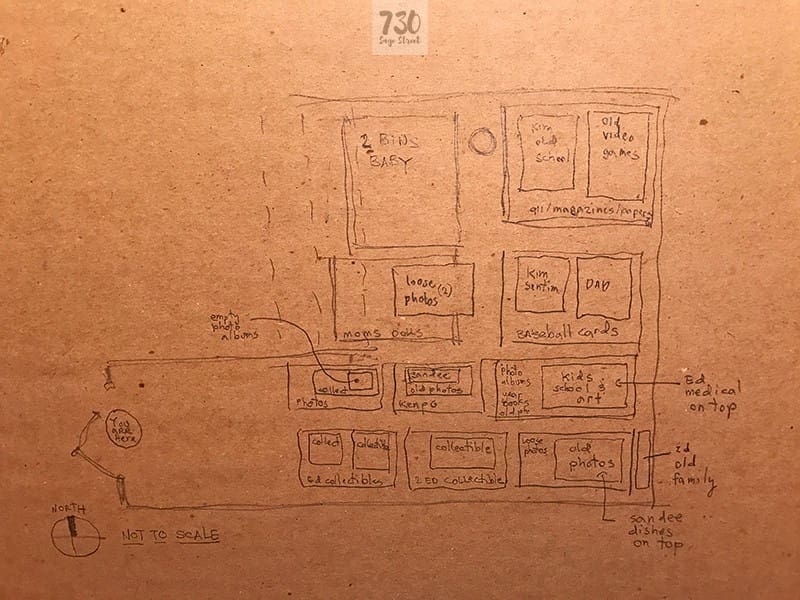 730
Sage Street
2 BINS
BABY
Kim
old
school
old
video
games
911/magazines/papers
loose (2)
photos
moms dolls
Kim
sentim
DAD
Baseball cards
empty
photo
albums
collect
photos
sandee
old photos
Ken PG
photo
albums
work
books
old ph
kids
school &
art
Ed
medical
on top
You
are
here
collect
collectible
Ed collectibles
collectible
2 ED collectible
loose
photos
old
photos
old
family
sandee
dishes
on top
NORTH
NOT TO SCALE